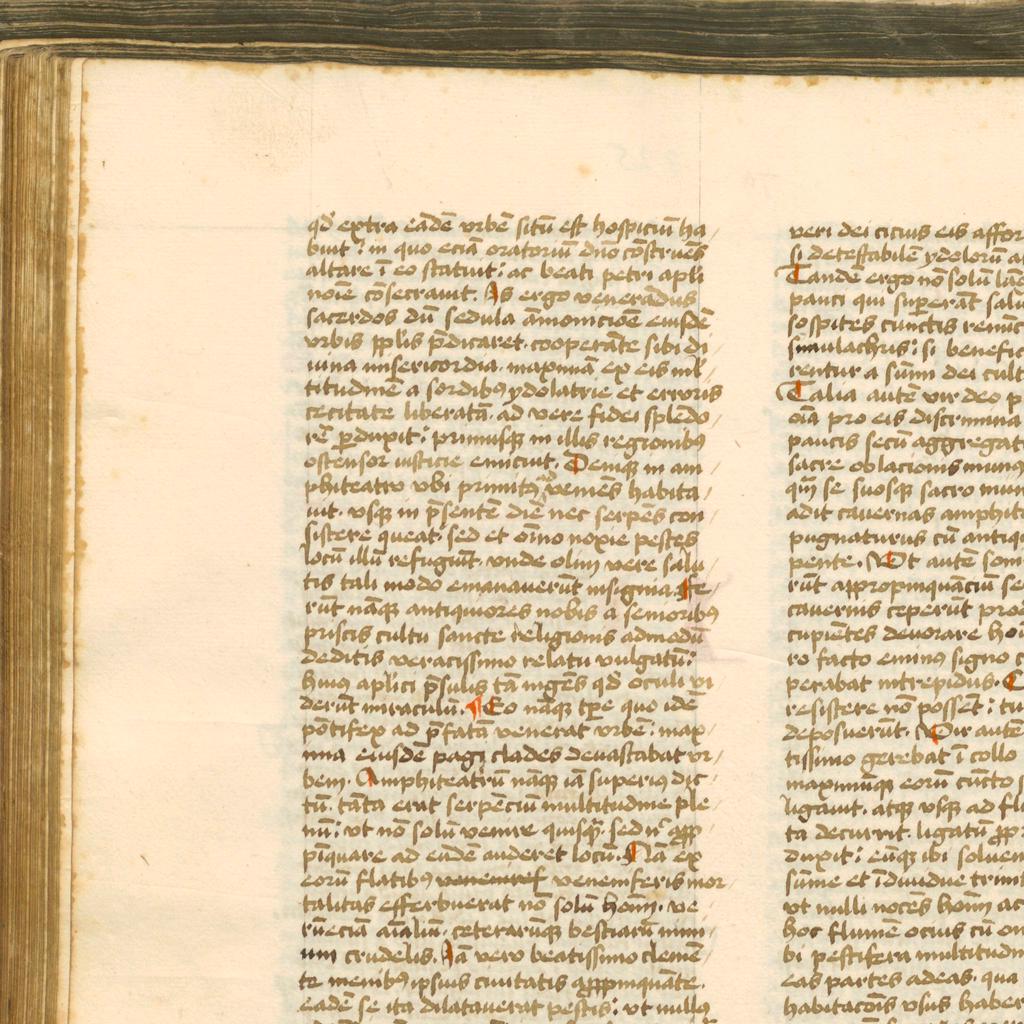 qd' extra eādē vrbē sitū est hospiciū ha
buit: in quo eciā oratoriū dno cōstruēs
altare ī eo statuit: ac beati petri apl'i
noīe cōsecrauit. Is ergo venerādus
sacerdos dū sedula āmonicioē eiusdē
vrbis ppl'is p̄dicaret. cooperāte sibi di
uina misericordia. maximā ex eis ml'
titudinē a sordibꝯ ydolatrie et erroris
cecitate liberatā. ad vere fidei splēdo
rē ꝑduxit: primusqꝫ in illis regionibꝯ
ostensor iusticie emicuit. Deniqꝫ in am
phiteatro vbi primitꝯ veniēs habita
uit. vsqꝫ in p̄sentē diē nec serpēs con
sistere queat. sed et oīno noxie pestes
locū illū refugiūt. vnde olim vere salu
tis tali modo emanauerūt insignia. Fe
rūt nāqꝫ antiquiores nobis a senioribꝯ
priscis cultu sancte religionis admodū
deditis veracissimo relatu vulgatū:
huiꝯ apl'ici p̄sulis tā ingēs qd' oculi vi
derūt miraculū. ¶ Eo nāqꝫ tp̄e quo idē
pōtifex ad p̄fatā venerat vrbē: max
ima eiusdē pagi clades deuastabat vr
bem. Amphiteatrū nāqꝫ iā superiꝯ dic
tū. tāta erat serpēciū multitudine ple
nū: vt nō solū venire quisqꝫ. sed nc̄ app
pīquare ad eūdē auderet locū. Nā ex
eorū flatibꝯ veneniferis mor
talitas efferbuerat nō solū homī. ve
rūeciā aīaliū. ceterarūqꝫ bestiarū nimi
um crudelis. Iā vero beatissimo clemē
te menibꝯ ipsius ciuitatis appīquāte.
eadē se ita dilatauerat pestis: vt nullꝯ
veri dei cicius eis affor
si detestabilē ydolorū
Tandē ergo nō solū
pauci qui superāt salu
sospites cunctis renūc
simulachris: si benefic
rentur a sūmi dei cult
Talia autē vir deo p
oīa pro eis discrimina
paucis secū aggregat
sacre oblacionis munꝯ
qm̄ se suosqꝫ sacro mun
adit cauernas amphit
pugnaturus cū antiq
pente. Vt autē son
rūt appropinquāciū se
cauernis ceperūt proc
cupiētes deuorare ho
ro facto eminꝯ signo c
perabat intrepidus.
resistere nō posset: tu
deposuerūt. Vir autē
tissimo gerebat ī collo
maximūqꝫ eorū cūcto s
ligauit. atqꝫ vsqꝫ ad fl
ta decurrit. ligatū
duxit: eūqꝫ ibi soluen
sūme et īdiuidue trinit
vt nulli nocēs homī ac
hoc flumē ocius cū on
bi pestifera multitudin
eas partes adeas. qua
habitacōis vsus haber